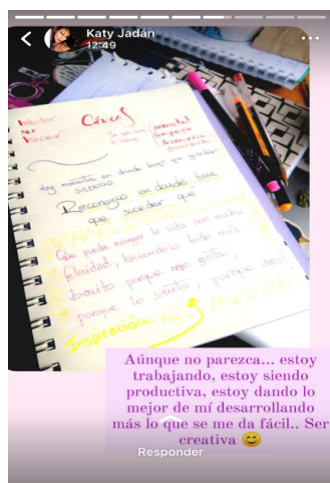 Katy Jadán
12:49
Ser
Hacer
hay momentos en donde tengo que guardar
SILENCIO
Reconozco en donde tiene
que suceder que
Que puedo navegar la vida con mucha
felicidad, haciendolo todo más
bonito porque me gusta,
porque lo siento, porque
Inspiración
Aúnque no parezca... estoy
trabajando, estoy siendo
productiva, estoy dando lo
mejor de mí desarrollando
más lo que se me da fácil.. Ser
creativa 😊
Responder